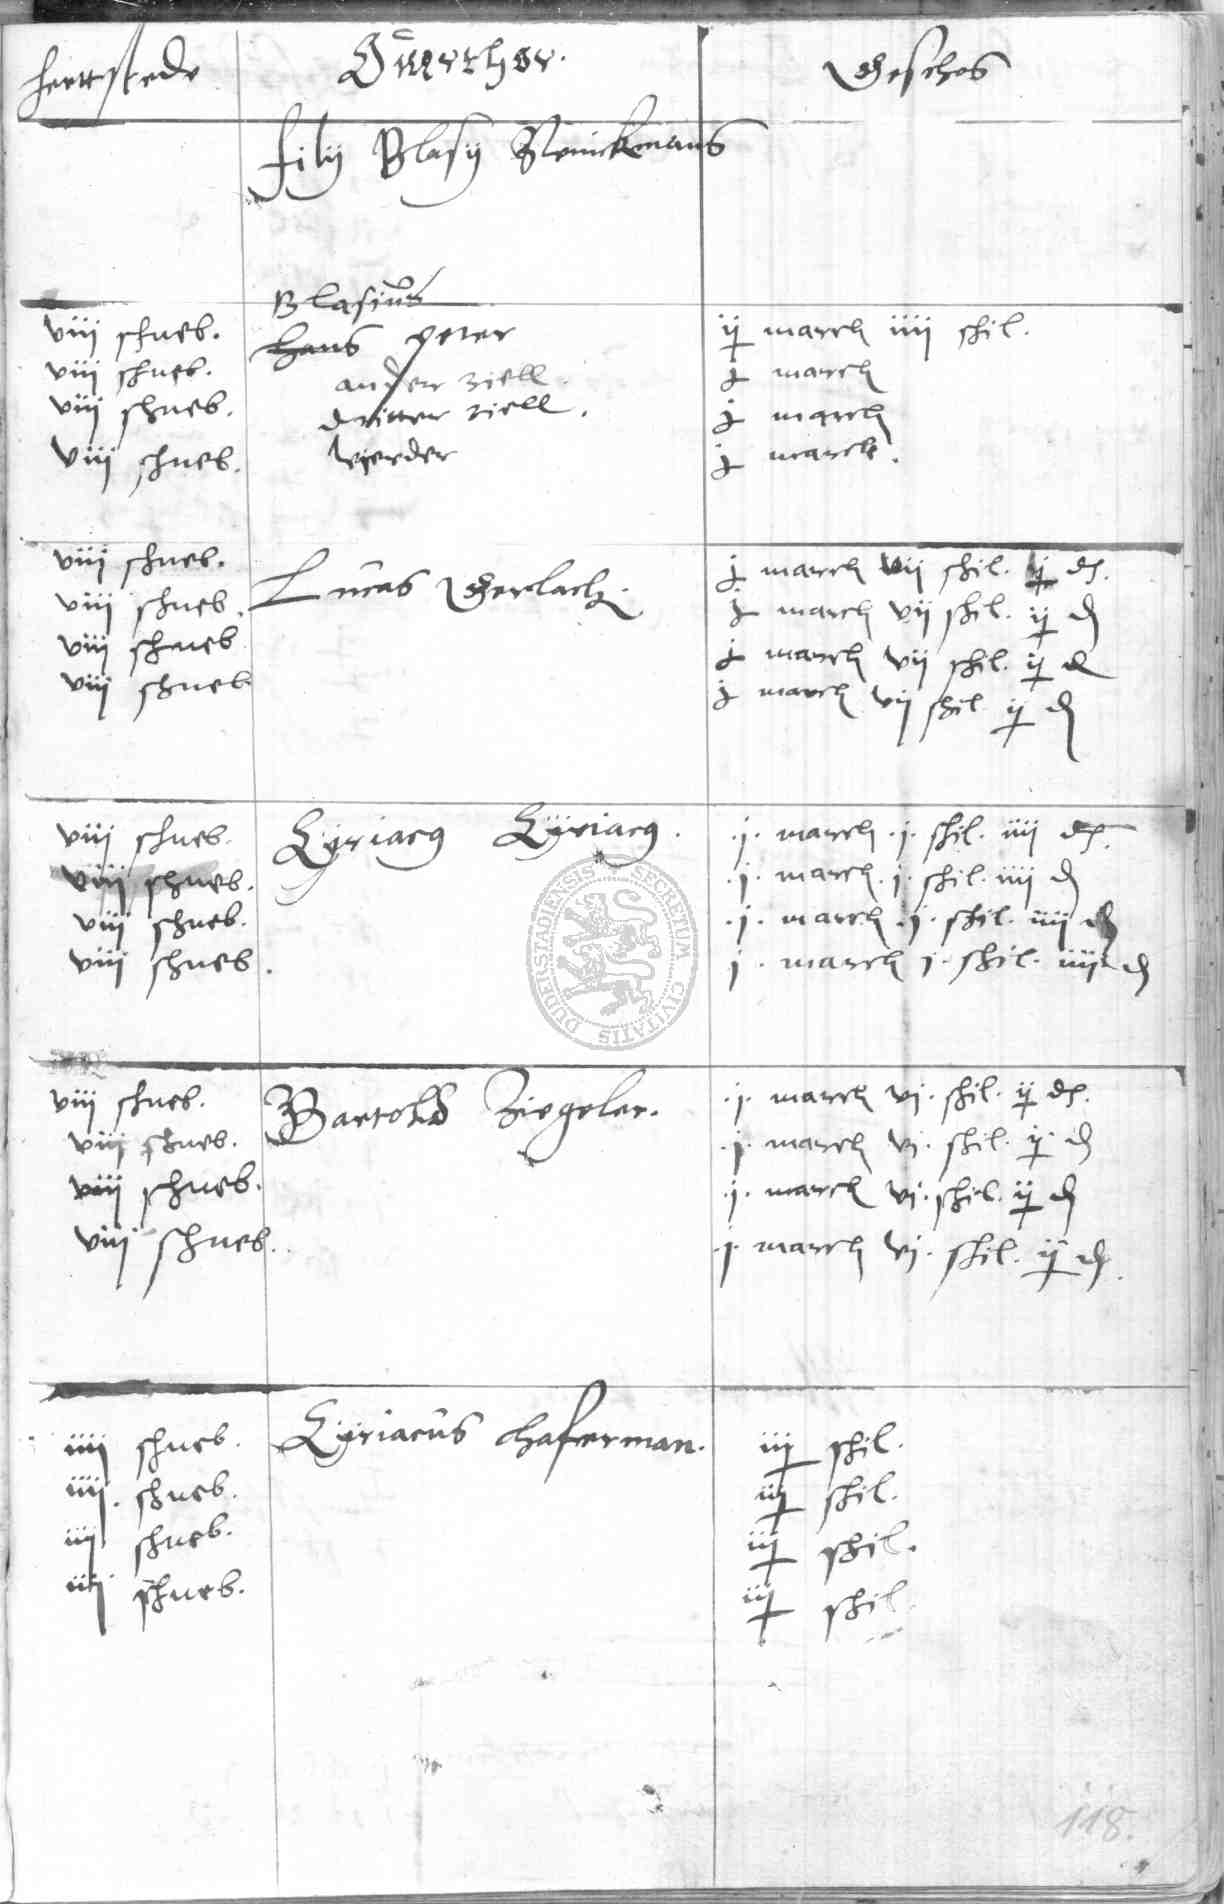 herttstede Ouerthor. Geschos
filij Blasij Renickmans
Blasius
viii schneb. hans peter ij march iiii schil.
viii schneb. ander ziell j march
viii schneb. dritter ziell. j march
viii schneb. vierder j march.
viii schneb. Lucas Gerlach. j march vii schil. ij d.
viii schneb. j march vij schil. ij d
viii schneb j march vij schil. ij d
viii schneb. j march vij schil ij d
viij schneb. Cyriacus Cyriacus. .j. march .j. schil. iiii d.
viij schneb. .j. march. j. schil. iiii d
viij schneb. .j. march .j. schil. iiij d
viij schneb. j. march j. schil. iiij d
viij schneb. Bartold Ziegeler. .j. march vj. schil. ij d.
viij schneb. .j. march vj. schil. ij d
viij schneb. .j. march vj. schil. ij d
viij schneb. .j. march vj. schil. ij d.
iiij schneb. Cyriacus haferman. iij schil.
iiij. schneb. iij schil.
iiij schneb. iij schil.
iiij schneb. iij schil.
SECRETUM CIVITATIS DUDERSTADIENSIS
118.